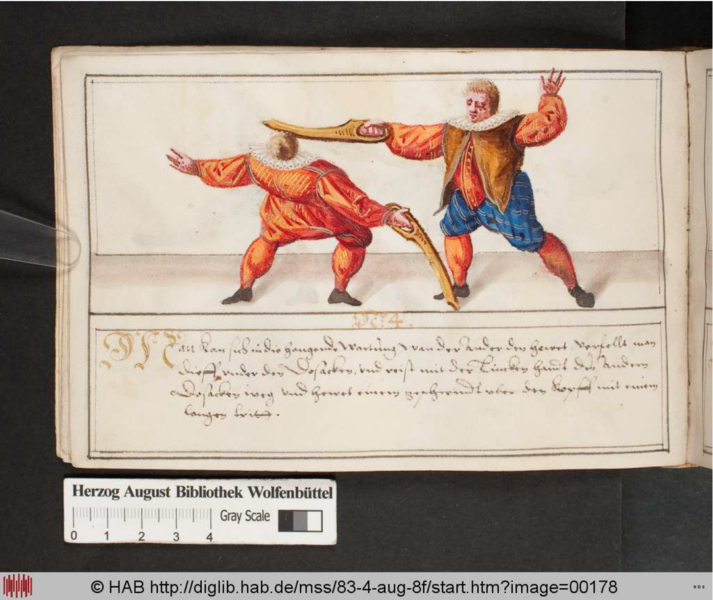 174.
Man kan sich in die hangende Wartung wan der ander den hewet verfellt man
dieff under den Desacken, und reist mit der Lincken handt des Andern
Desacken weg und hewet einem geschwindt uber den Kopff mit einem
langen tritt.
Herzog August Bibliothek Wolfenbüttel
Gray Scale
0 1 2 3 4
© HAB http://diglib.hab.de/mss/83-4-aug-8f/start.htm?image=00178